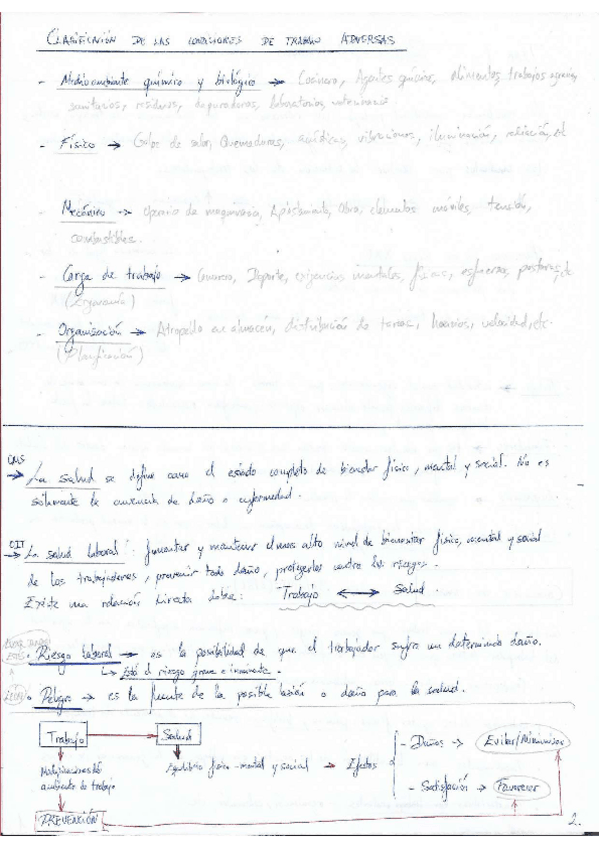 CLASIFICACIÓN DE LAS CONDICIONES DE TRABAJO ADVERSAS
- Medio ambiente químico y biológico → Cocinero, Agentes químicos, alimentos, trabajos agrarios,
sanitarios, residuos, depuradoras, laboratorios, veterinarios
- Físico → Golpe de calor, Quemaduras, acústicas, vibraciones, iluminación, radiación, etc
- Mecánico → Operario de maquinaria, Aplastamiento, Obra, elementos móviles, tensión,
combustibles.
- Carga de trabajo → Deporte, exigencias mentales, físicas, esfuerzo, posturas, etc
(Ergonomía)
- Organización → Atropello en almacén, distribución de tareas, horarios, velocidad, etc.
(Planificación)
OMS
→ La salud se define como el estado completo de bienestar físico, mental y social. No es
solamente la ausencia de daño o enfermedad.
OIT
→ La salud laboral: fomentar y mantener el mas alto nivel de bienestar físico, mental y social
de los trabajadores, prevenir todo daño, protegerlos contra los riesgos.
Existe una relación directa sobre: Trabajo ↔ Salud.
Riesgo laboral → es la posibilidad de que el trabajador sufra un determinado daño.
↳ Está el riesgo grave e inminente.
Peligro → es la fuente de la posible lesión o daño para la salud.
Trabajo → Salud - Daños → Evitar/Minimizar
ambiente de trabajo Equilibrio físico-mental y social → Efectos
- Satisfacción → Favorecer
PREVENCIÓN
2.